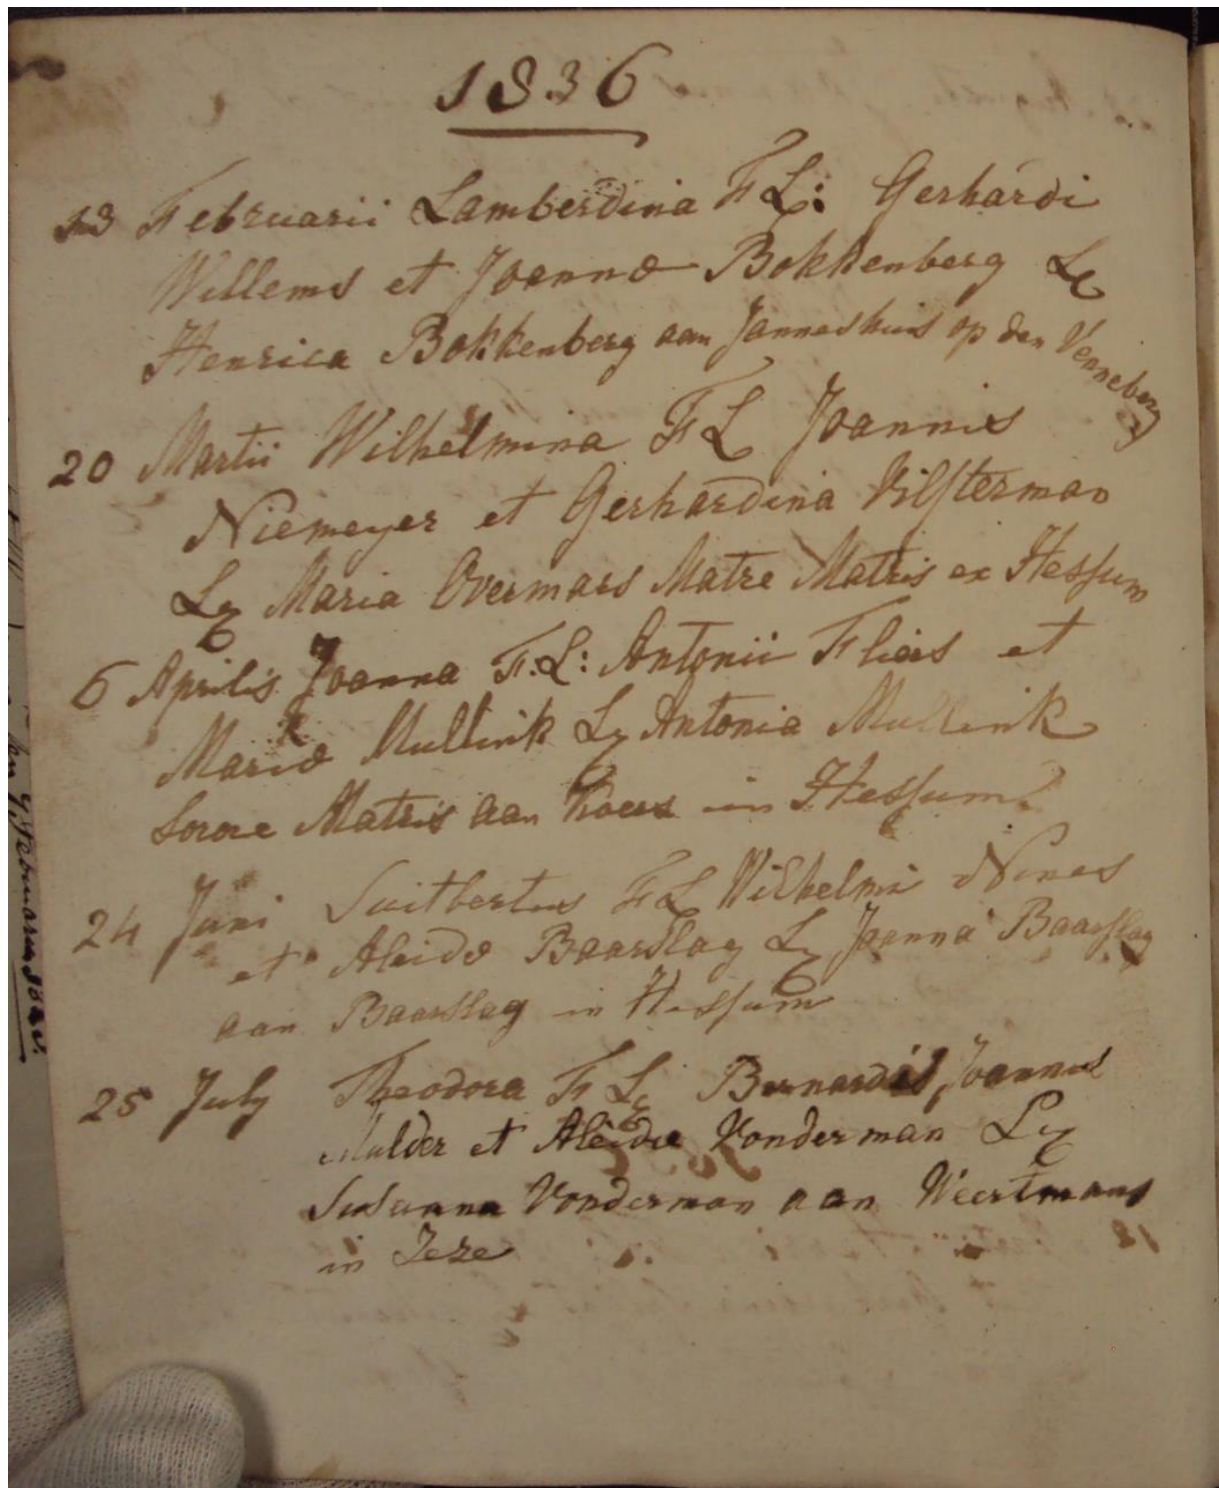 1836
Februarii Lamberdina F L: Gerhardi
Willems et Joannæ Bokkenberg Lx
Henrica Bokkenberg aan Janneshuis op den Venneberg
20 Martii Wilhelmina F L Joannis
Niemeyer et Gerhardina Vilsterman
Lx Maria Overmars Matre Matris ex Hessum
6 Aprilis Joanna F. L: Antonii Fliers et
Mariæ Mullink Lx Antonia Mullink
Sorore Matris aan in Hessum
24 Juni Suitbertus F L Wilhelmi
et Aleidæ Baarslag Lx Joanna Baarslag
aan Baarslag in Hessum
25 July Theodora F Lx Bernardi Joannes
Mulder et Aleidæ Vonderman Lx
Susanna Vonderman aan Weertmans
in Zeze